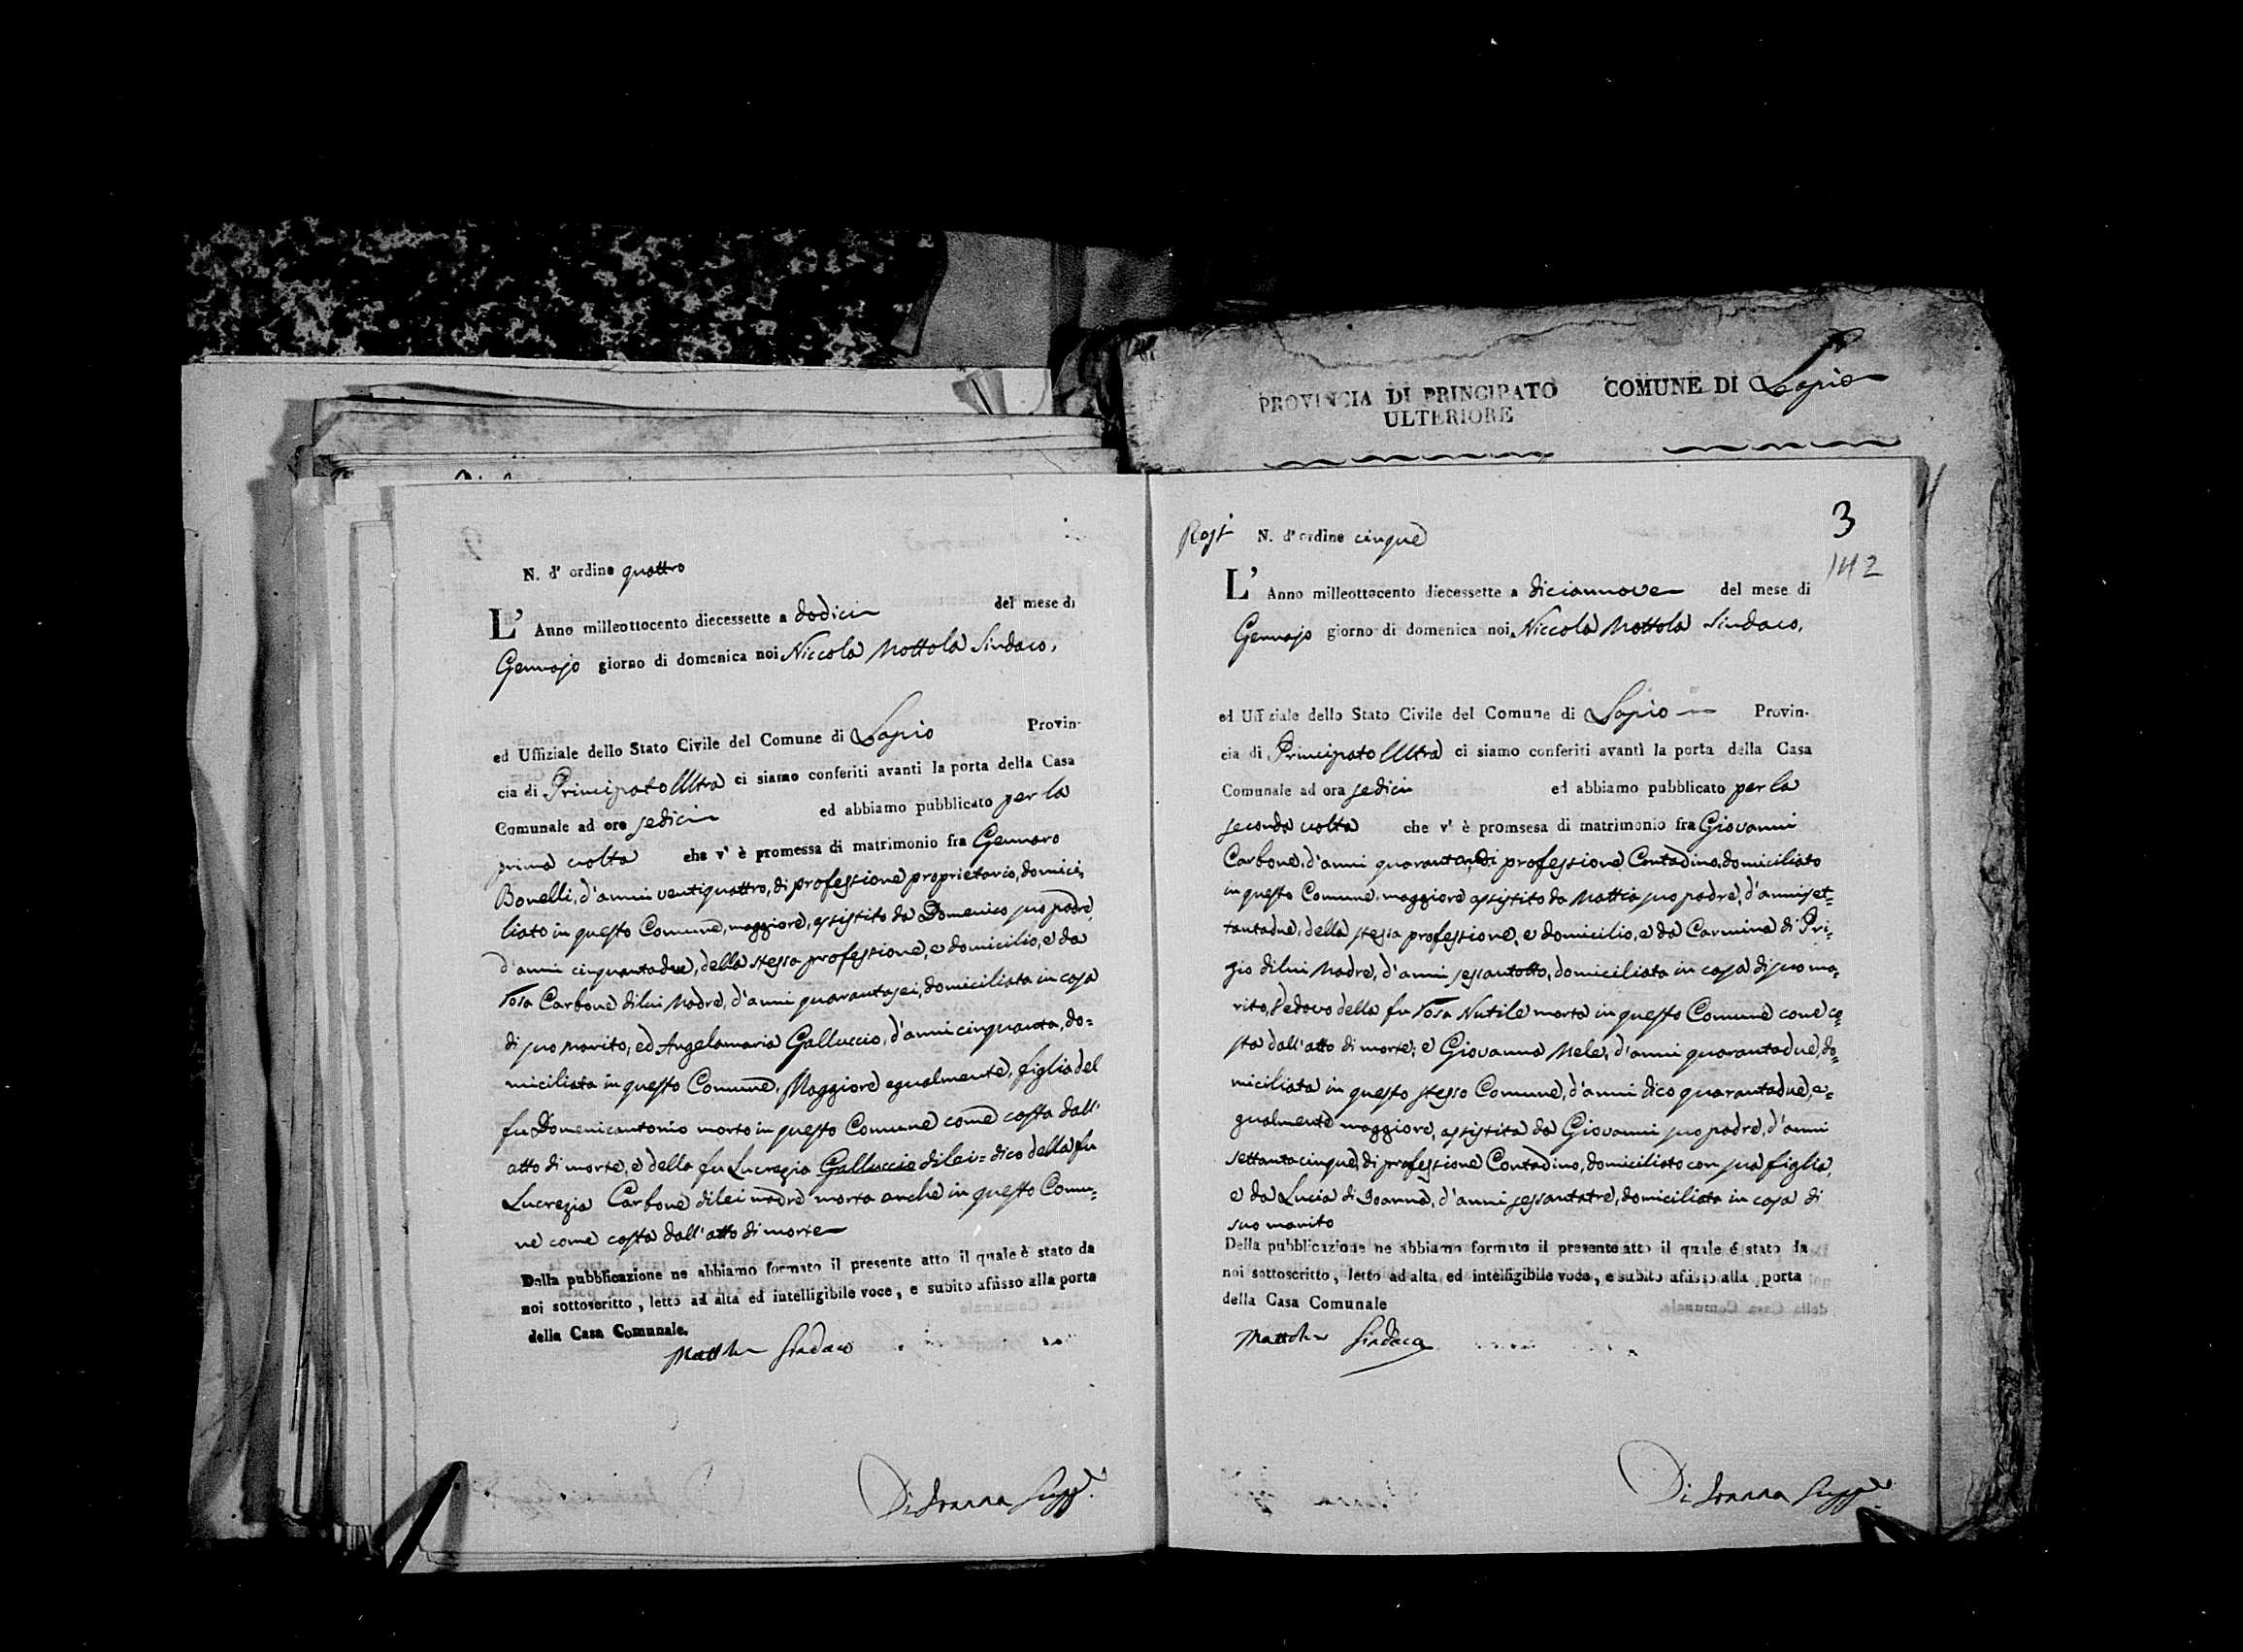 PROVINCIA DI PRINCIPATO
ULTERIORE
COMUNE DI Lapio
N. d' ordine quattro
L' Anno milleottocento diecessette a dodici del mese di
Gennajo giorno di domenica noi Niccola Mottola Sindaco,
ed Uffiziale dello Stato Civile del Comune di Lapio Provin-
cia di Principato Ultra ci siamo conferiti avanti la porta della Casa
Comunale ad ore sedici ed abbiamo pubblicato per la
prima volta che v' è promessa di matrimonio fra Gennaro
Bonelli, d'anni ventiquattro, di professione proprietario, domici,
liato in questo Comune, maggiore, assistito da Domenico suo padre,
d'anni cinquantadue, della stessa professione, e domicilio, e da
Rosa Carbone di lui Madre, d'anni quarantasei, domiciliata in casa
di suo marito; ed Angelamaria Galluccio, d'anni cinquanta, do=
miciliata in questo Comune, Maggiore egualmente, figlia del
fu Domenicantonio morto in questo Comune come costa dall'
atto di morte, e della fu Lucrezia Galluccio di lei= dico della fu
Lucrezia Carbone di lei madre morta anche in questo Comu=
ne come costa dall'atto di morte
Della pubblicazione ne abbiamo formato il presente atto il quale è stato da
noi sottoscritto, letto ad alta ed intelligibile voce, e subito affisso alla porta
della Casa Comunale.
Mottola Sindaco
Di Ioanna
3
142
N. d' ordine cinque
L' Anno milleottocento diecessette a diciannove del mese di
Gennajo giorno di domenica noi Niccola Mottola Sindaco,
ed Uffiziale dello Stato Civile del Comune di Lapio Provin-
cia di Principato Ultra ci siamo conferiti avanti la porta della Casa
Comunale ad ora sedici ed abbiamo pubblicato per la
seconda volta che v' è promsesa di matrimonio fra Giovanni
Carbone, d'anni quaranta, di professione Contadino, domiciliato
in questo Comune, maggiore assistito da Mattia suo padre, d'anni set=
tantadue, della stessa professione, e domicilio, e da Carmina di Pri=
zio di lui Madre, d'anni sessantotto, domiciliata in casa di suo ma=
rito, Vedovo della fu Rosa Nutile morta in questo Comune come co=
sta dall'atto di morte; e Giovanna Mele, d'anni quarantadue, do=
miciliata in questo stesso Comune, d'anni dico quarantadue, e=
gualmente maggiore, assistita da Giovanni suo padre, d'anni
settantacinque, di professione Contadino, domiciliato con sua figlia,
e da Lucia di Ioanna, d'anni sessantatre, domiciliata in casa di
suo marito
Della pubblicazione ne abbiamo formato il presente atto il quale é stato da
noi sottoscritto, letto ad alta ed intelligibile voce, e subito affisso alla porta
della Casa Comunale
Mottola Sindaco
Di Ioanna